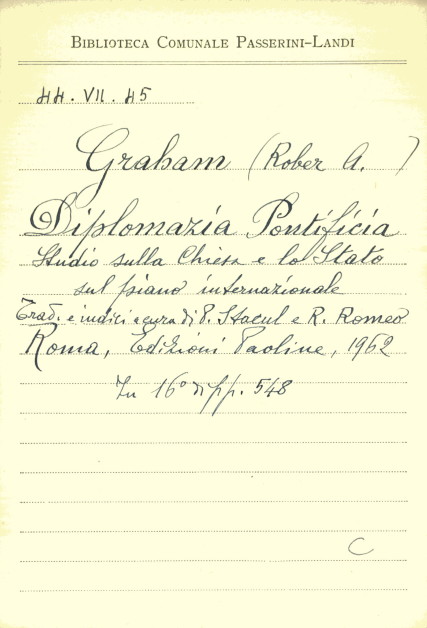 BIBLIOTECA COMUNALE PASSERINI-LANDI
44. VII. 45
Graham (Rober A. )
Diplomazia Pontificia
Studio sulla Chiesa e lo Stato
sul piano internazionale
Trad. e indici a cura di P. Stacul e R. Romeo
Roma, Edizioni Paoline, 1962
In 16° di pp. 548
C